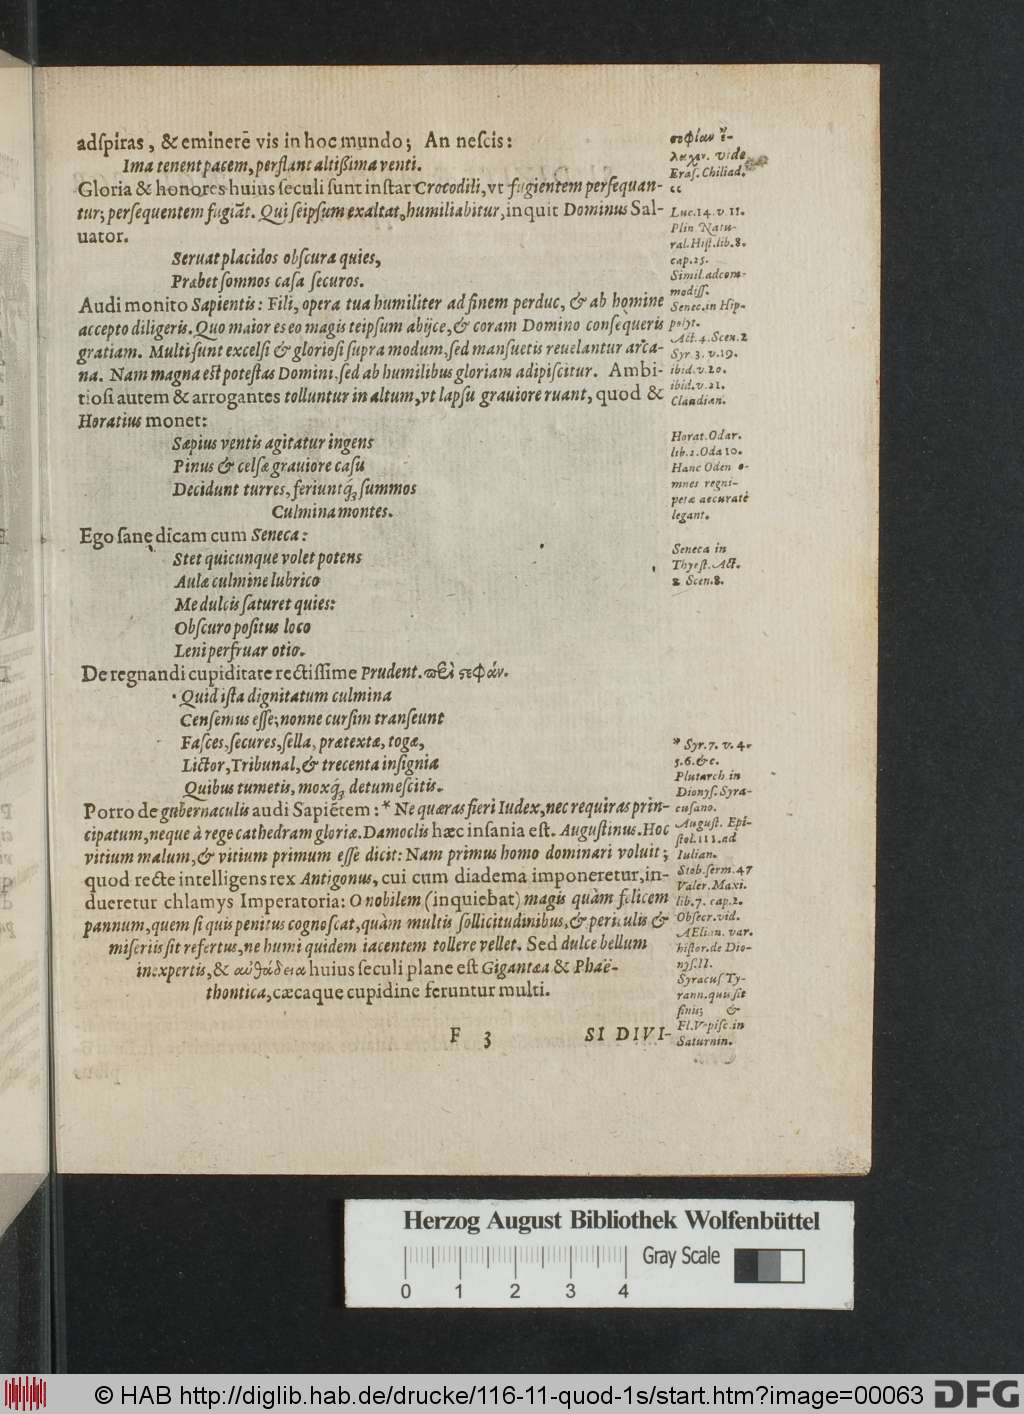 adſpiras, & eminerē vis in hoc mundo; An neſcis:
Ima tenent pacem, perſtant altißima venti.
Gloria & honores huius ſeculi ſunt inſtar Crocodili, vt fugientem perſequan-
tur; perſequentem fugiāt. Qui ſeipſum exaltat, humiliabitur, inquit Dominus Sal-
uator.
Seruat placidos obſcura quies,
Præbet ſomnos caſa ſecuros.
Audi monito Sapientis: Fili, opera tua humiliter ad finem perduc, & ab homine
accepto diligeris. Quo maior es eo magis teipſum abijce, & coram Domino conſequeris
gratiam. Multi ſunt excelſi & glorioſi ſupra modum, ſed manſuetis reuelantur arca-
na. Nam magna eſt poteſtas Domini, ſed ab humilibus gloriam adipiſcitur. Ambi-
tioſi autem & arrogantes tolluntur in altum, vt lapſu grauiore ruant, quod &
Horatius monet:
Sæpius ventis agitatur ingens
Pinus & celſæ grauiore caſu
Decidunt turres, feriuntq́; ſummos
Culmina montes.
Ego ſane dicam cum Seneca:
Stet quicunque volet potens
Aulæ culmine lubrico
Me dulcis ſaturet quies:
Obſcuro poſitus loco
Leni perfruar otio.
De regnandi cupiditate rectiſſime Prudent. περὶ στεφάν.
Quid iſta dignitatum culmina
Cenſemus eſſe; nonne curſim tranſeunt
Faſces, ſecures, ſella, prætextæ, togæ,
Lictor, Tribunal, & trecenta inſignia
Quibus tumetis, moxq́; detumeſcitis.
Porro de gubernaculis audi Sapiētem: * Ne quæras fieri Iudex, nec requiras prin-
cipatum, neque à rege cathedram gloriæ. Damoclis hæc inſania eſt. Auguſtinus. Hoc
vitium malum, & vitium primum eſſe dicit: Nam primus homo dominari voluit;
quod recte intelligens rex Antigonus, cui cum diadema imponeretur, in-
dueretur chlamys Imperatoria: O nobilem (inquiebat) magis quàm felicem
pannum, quem ſi quis penitus cognoſcat, quàm multis ſollicitudinibus, & periculis &
miſeriis ſit refertus, ne humi quidem iacentem tollere vellet. Sed dulce bellum
inexpertis, & αὐθάδεια huius ſeculi plane eſt Gigantæa & Phaë-
thontica, cæcaque cupidine feruntur multi.
F 3 SI DIVI-
vide
Eraſ. Chiliad.
cc
Luc. 14. v. 11.
Plin Natu-
ral. Hiſt. lib. 8.
cap. 25.
Simil. adcom-
modiſſ.
Senec. in Hip-
polyt.
Act. 4. Scen. 2
Syr. 3. v. 19.
ibid. v. 20.
ibid. v. 21.
Claudian.
Horat. Odar.
lib. 2. Oda 10.
Hanc Oden o-
mnes regni-
petæ accuratè
legant.
Seneca in
Thyeſt. Act.
2 Scen. 8.
* Syr. 7. v. 4.
5. 6. &c.
Plutarch in
Dionyſ. Syra-
cuſano.
Auguſt. Epi-
ſtol. 111. ad
Iulian.
Stob. ſerm. 47
Valer. Maxi.
lib. 7. cap. 2.
Obſecr. vid.
AElian. var.
hiſtor. de Dio-
nyſ. II.
Syracuſ Ty-
rann. quis ſit
finis; &
Fl. Vopiſc. in
Saturnin.
Herzog August Bibliothek Wolfenbüttel
Gray Scale
0 1 2 3 4
© HAB http://diglib.hab.de/drucke/116-11-quod-1s/start.htm?image=00063
DFG